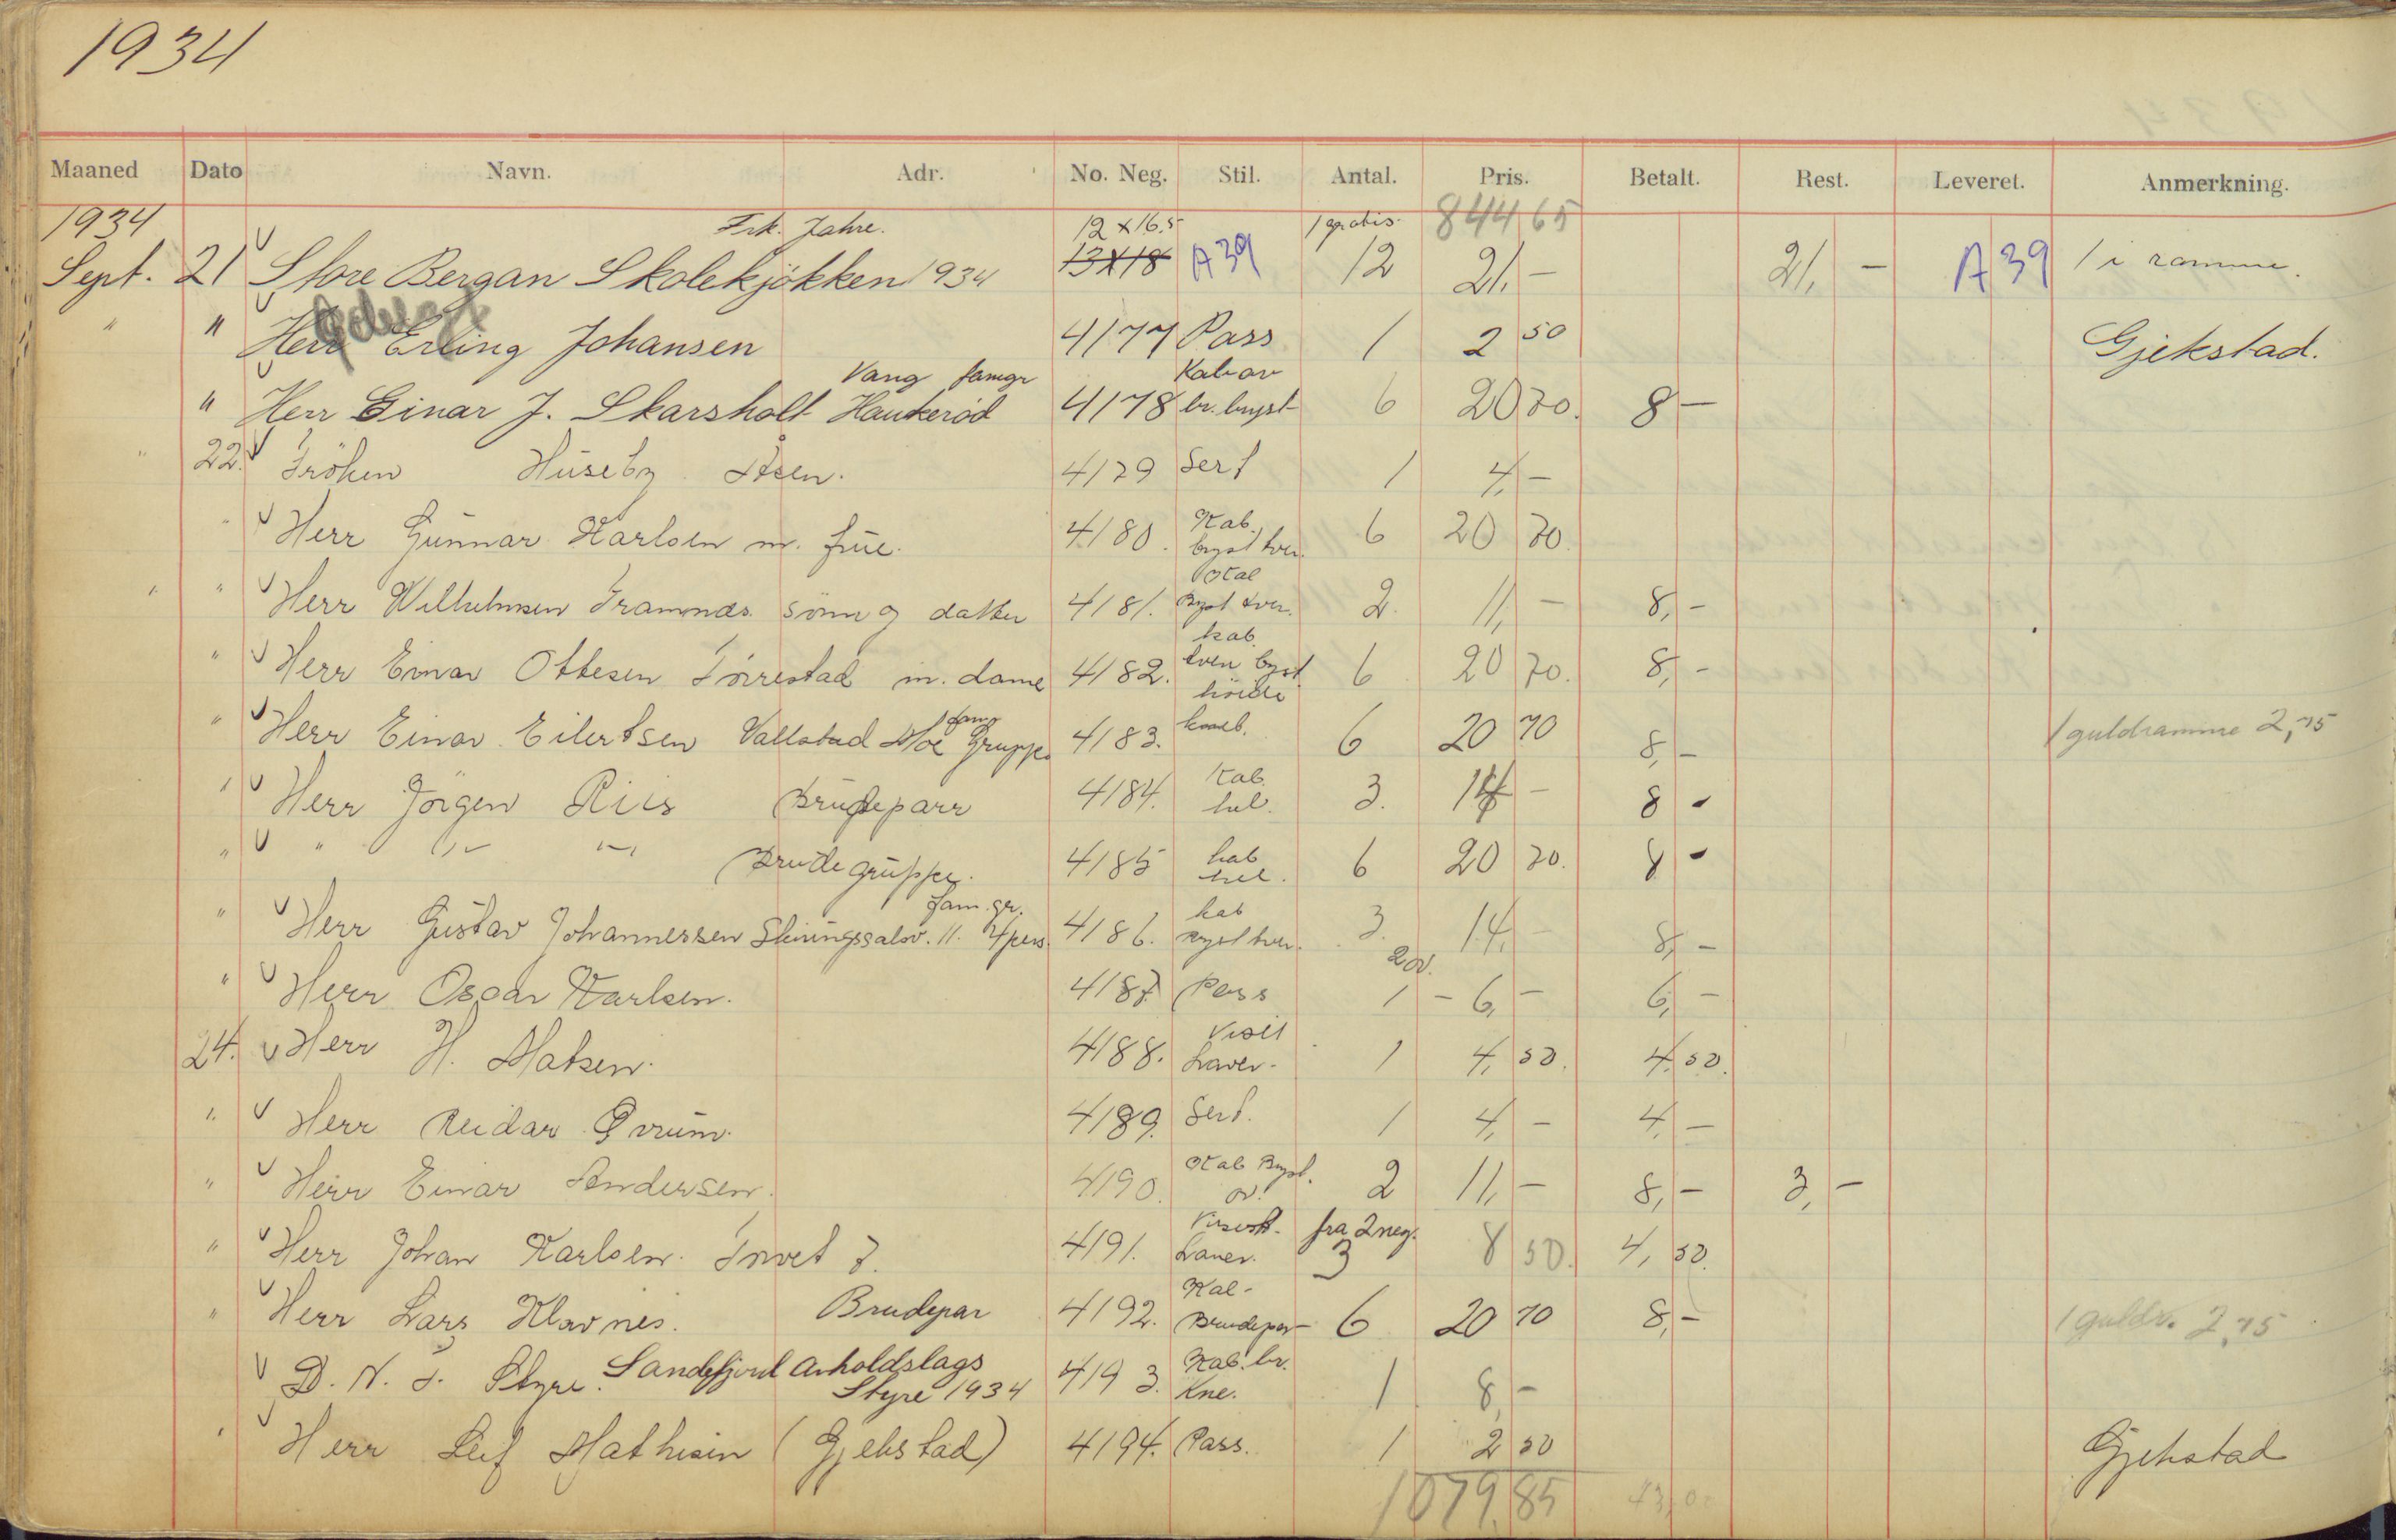 1934
Maaned Dato Navn. Adr. No. Neg. Stil. Antal. Pris. Betalt. Rest. Leveret. Anmerkning.
1934 Frk. Jahre. 12 x 16,5 1 gratis. 844 65
Sept. 21 Store Bergan Skolekjökken 1934 13x18 A 39 12 21,- 21,- A 39 1 i ramme.
" " Herr Erling Johansen 4177 Pass 1 2 50 Gjekstad.
Vang famgr Kab
" Herr Einar J. Skarsholt Haukeröd 4178 br. byst 6 20 70. 8 -
" 22. Fröken Huseby 4179 Sert 1 4,-
" Herr Gunnar Karlsen m. frue. 4180. Kab. byst tver. 6 20 70.
" " Herr Wilhelmsen Framnds. sönn og datter 4181. Kab Byst tver. 2. 11,- 8,-
" Herr Einar Ottesen Torrestad m. dame 4182. kab. tver byst 6 20 70. 8,-
" Herr Einar Eilertsen Vallstad Moe fam Gruppe 4183. kab. 6 20 70 8,- 1 guldramme 2,75
" Herr Jörgen Riis Brudeparr 4184. Kab. hel. 3. 14 - 8 -
" " Brudegruppe. 4185 kab hel. 6 20 70. 8 -
" Herr Gustav Johannessen Skiringssalsv. 11. fam.gr. 4 pers. 4186. kab byst tver. 3. 14,- 8,-
" Herr Oscar Karlsen. 4187 Pass 2 ov. 1 - 6,- 6,-
24. Herr H. Matsen. 4188. Visit Laver. 1 4,50. 4,50.
" Herr Reidar 4189. Sert. 1 4,- 4,-
" Herr Einar Andersen. 4190. Kab Byst. ov. 2 11,- 8,- 3,-
" Herr Johan Karlsen. Torvet 7. 4191. Visit. Laver. fra 2 neg. 3 8 50. 4,50.
" Herr Lars Klavnes. Brudepar 4192. Kab- Brudepar 6 20 70 8,- 1 guldr. 2,75
D. N. T. Styre. Sandefjord Avholdslags Styre 1934 4193. Kab. br. Kne. 1 8,-
" Herr Leif Mathisen (Gjekstad) 4194. Pass. 1 2 50 Gjekstad
1079,85